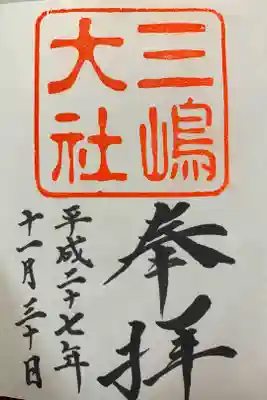 三嶋
大社
奉拝
平成二十七年
十一月三十日